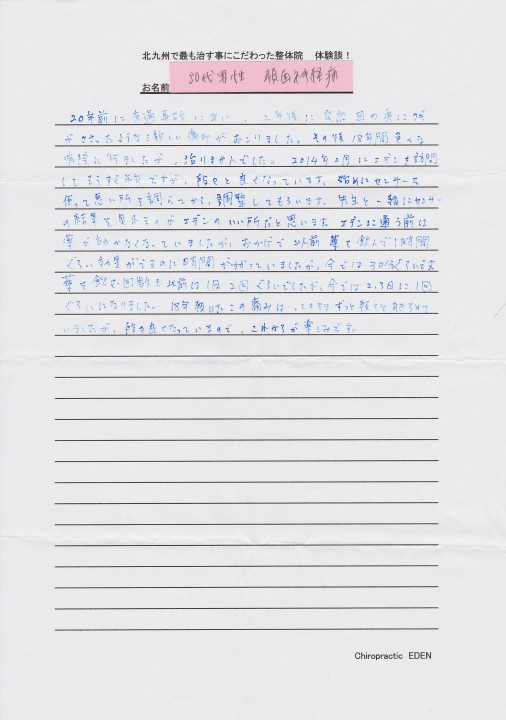 北九州で最も治す事にこだわった整体院　体験談！
お名前 50代男性 顔面神経痛
20年前に交通事故にあい、2年後に突然目の奥にクギ
がささったような激しい痛みがおこりました。その後18年間色々な
病院に行きましたが、治りませんでした。2014年2月にエデンを訪問
してもうすぐ半年ですが、段々と良くなっています。始めにセンサーを
使って悪い所を調べてから、調整してもらいます。先生と一緒にセンサー
の結果を見れるのがエデンのいい所だと思います。エデンに通う前は
薬が効かなくなっていましたが、おかげで以前薬を飲んで1時間
ぐらい効果がでるのに時間がかかっていましたが、今では30分ぐらいで
薬を飲む回数も以前は1日2回ぐらいでしたが、今では2,3日に1回
ぐらいになりました。18年続いたこの痛みは、これからずっと続くと
いましたが、段々良くなっているので、これからが楽しみです。
Chiropractic EDEN